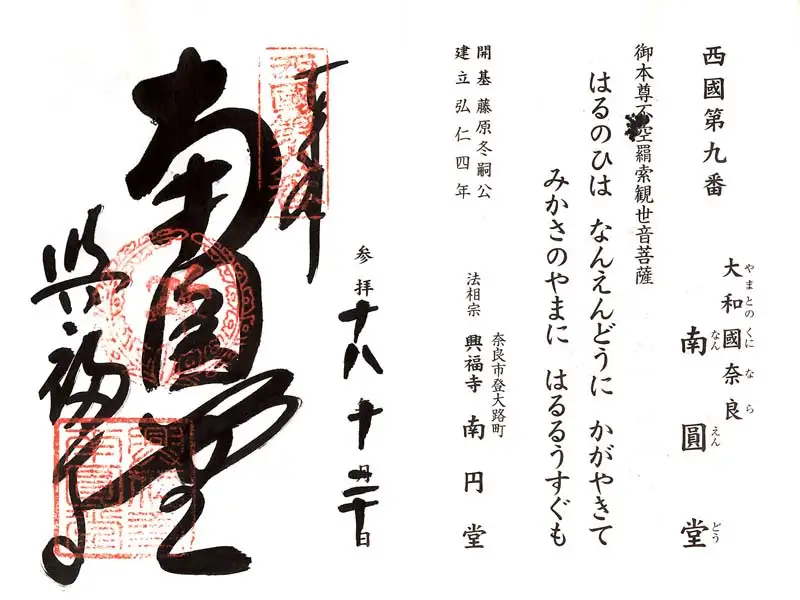 西國第九番
やまとのくになら
大和國奈良
なんえんどう
南圓堂
御本尊不空羂索観世音菩薩
はるのひは なんえんどうに かがやきて
みかさのやまに はるるうすぐも
開基藤原冬嗣公
建立弘仁四年
奈良市登大路町
法相宗 興福寺 南円堂
参拝十八年十月二十日
奉拝
南圓堂
興福寺